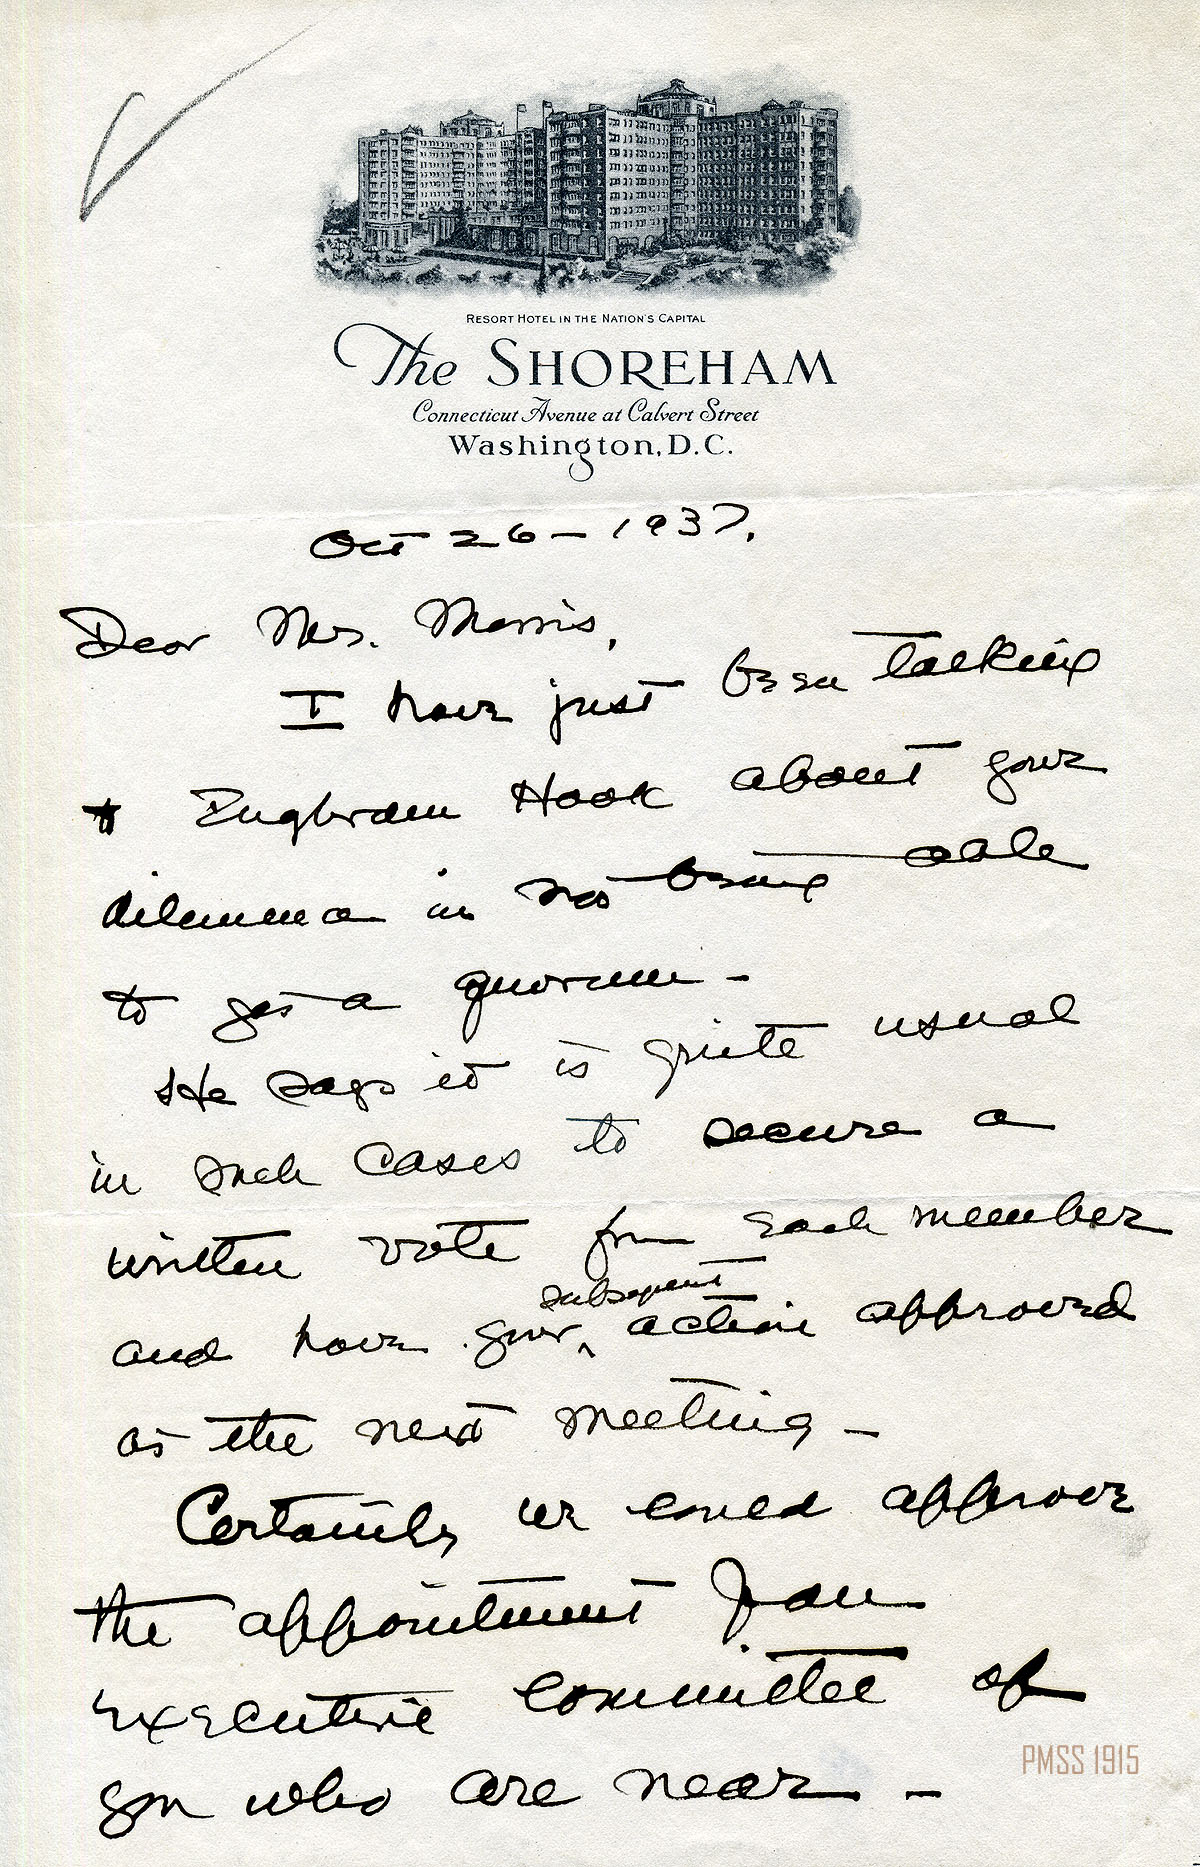 RESORT HOTEL IN THE NATION'S CAPITAL
The SHOREHAM
Connecticut Avenue at Calvert Street
Washington, D.C.
Oct 26 - 1937.
Dear Mrs. Morris,
I have just been talking
to Engbram Hook about your
dilemma in not being able
to get a quorum -
He says it is quite usual
in such cases to secure a
written vote from each member
subsequent
and have your action approved
at the next meeting -
Certainly we could approve
the appointment of an
executive committee of
you who are near -
PMSS 1915